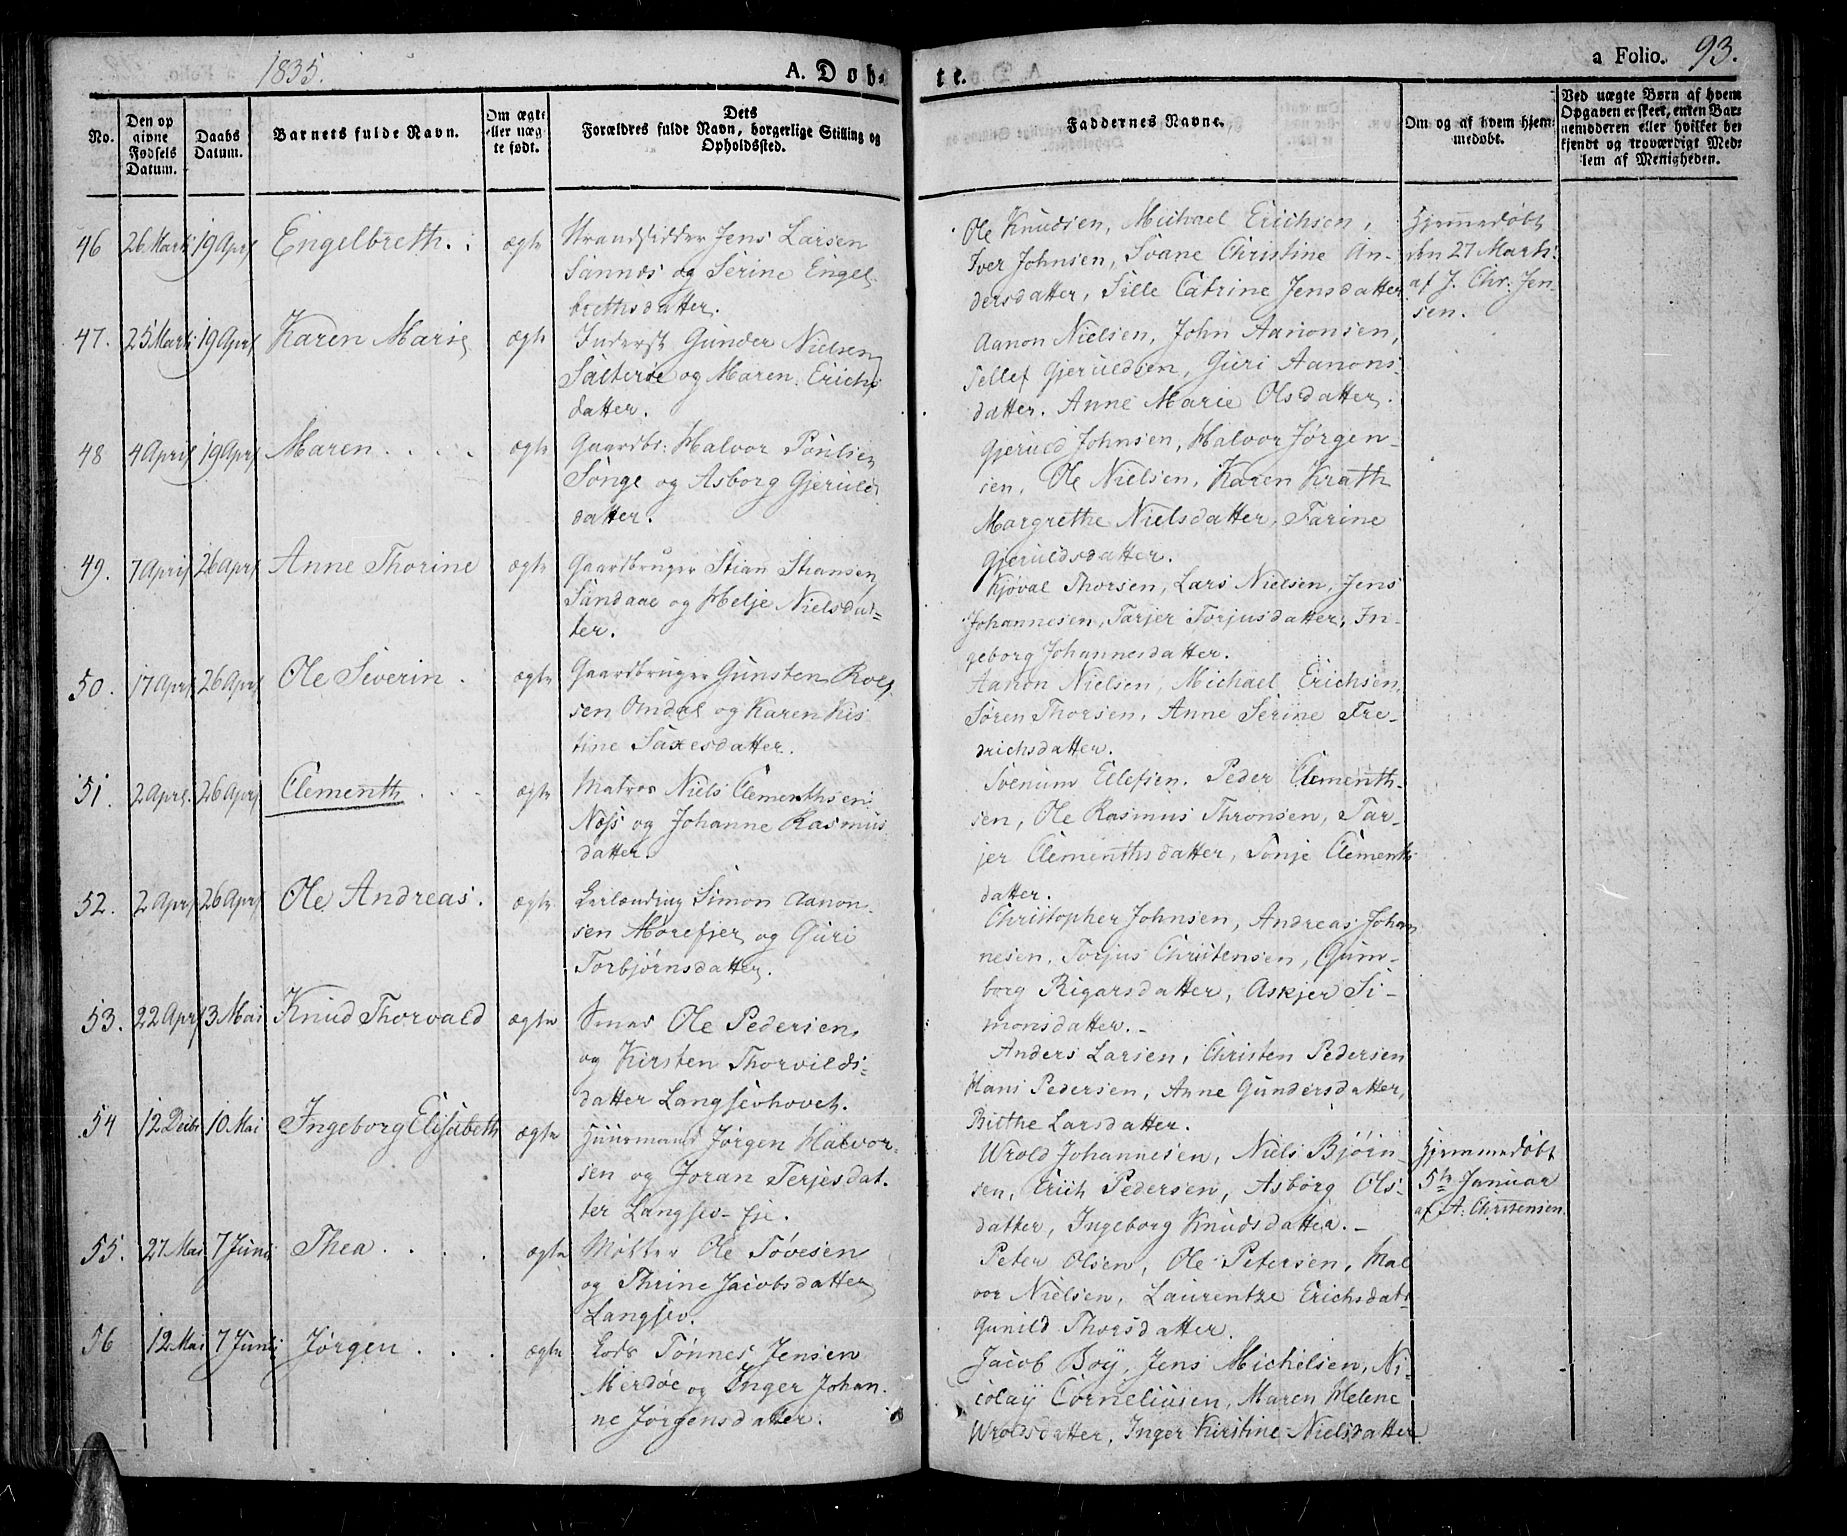 1835.
A. Døb-
te.
a Folio. 93.
No.
Den op
givne
Fødsels
Datum.
Daabs
Datum.
Barnets fulde Navn.
Om ægte
eller uæg-
te født.
Dets
Forældres fulde Navn, borgerlige Stilling og
Opholdssted.
Faddernes Navne.
Om og af hvem hjem-
medøbt.
Ved uægte Børn af hvem
Opgaven er skeet, enten Bar-
nemoderen eller hvilket be-
kjendt og troværdigt Med-
lem af Menigheden.
46 26 Marti 19 Apr Engelbreth. ægte Strandsidder Jens Larsen
Sannes og Serine Engel-
brethsdatter.
Ole Knudsen, Michael Erichsen,
Iver Johnsen, Svane Christine An-
dersdatter, Sille Catrine Jensdatter
Hjemmedøbt
den 27 Marti
af J. Chr. Jen-
sen.
47. 25 Marti 19 Apr Karen Marie ægte Inderst Gunder Nielsen
Salterøe og Maren Erichs
datter.
Aanon Nielsen, John Aanonsen,
Tellef Gjeruldsen, Guri Aanons-
datter. Anne Marie Olsdatter.
48 4 April 19 Apr Maren . . . . ægte Gaardbr: Halvor Poulsen
Songe og Asborg Gjeruld
datter.
Gjeruld Johnsen, Halvor Jørgen-
sen, Ole Nielsen, Karen Krath
Margrethe Nielsdatter, Tarine
Gjeruldsdatter.
49. 7 April 26 Apr Anne Thorine ægte Gaardbruger Stian Stiansen
Sandaae og Helje Nielsdat-
ter.
Kjøval Thorsen, Lars Nielsen, Jens
Johannesen, Tarjer Torjusdatter, In-
geborg Johannesdatter.
50. 17 Apr 26 Apr Ole Severin . ægte Gaardbruger Gunsten Rolf
sen Omdal og Karen Kis
tine Saxesdatter.
Aanon Nielsen, Michael Erichsen,
Søren Thorsen, Anne Serine Fre-
drichsdatter.
51. 2 Apr. 26 Apr Clementh . . . ægte Matros Niels Clementhsen
Næss og Johanne Rasmus
datter.
Svenum Ellefsen. Peder Clementh-
sen, Ole Rasmus Thronsen, Tar-
jer Clementhsdatter, Tonje Clementh
datter.
52. 2 Apr 26 Apr Ole Andreas. ægte Simon Aanon-
sen Morefjer og Guri
Torbjørnsdatter.
Christopher Johnsen, Andreas Johan
nesen, Torjus Christensen, Gum-
borg Rigarsdatter, Askjer Si-
monsdatter.-
53. 22 Apr 3 Mai Knud Thorvald ægte Smed Ole Pedersen
og Kirsten Thorvilds-
datter Langsevhovet.
Anders Larsen, Christen Pedersen
Hans Pedersen, Anne Gundersdatter,
Birthe Larsdatter.
54 12 Decbr 10 Mai Ingeborg Elisabeth ægte Huusmand Jørgen Halvor-
sen og Joran Terjesdat-
ter Langsev-Eje.
Wrold Johannesen, Niels Bjørn-
sen, Erich Pedersen, Asborg Ols-
datter, Ingeborg Knudsdatter.-
Hjemmedøbt
5te Januar
af A. Christensen.
55. 27 Mai 7 Juni Thea . . . . ægte Møller Ole Tovesen
og Thrine Jacobsdatter
Langsev.
Peter Olsen, Ole Petersen, Hal
vor Nielsen, Laurentze Erichsdat-
Gunild Thorsdatter.
56 12 Mai 7 Juni Jørgen . . . ægte Lods Tønnes Jensen
Merdøe og Inger Johan-
ne Jørgensdatter.
Jacob Boy, Jens Michelsen, Ni-
colay Corneliusen, Maren Helene
Wroldsdatter, Inger Kirstine Nielsdatter